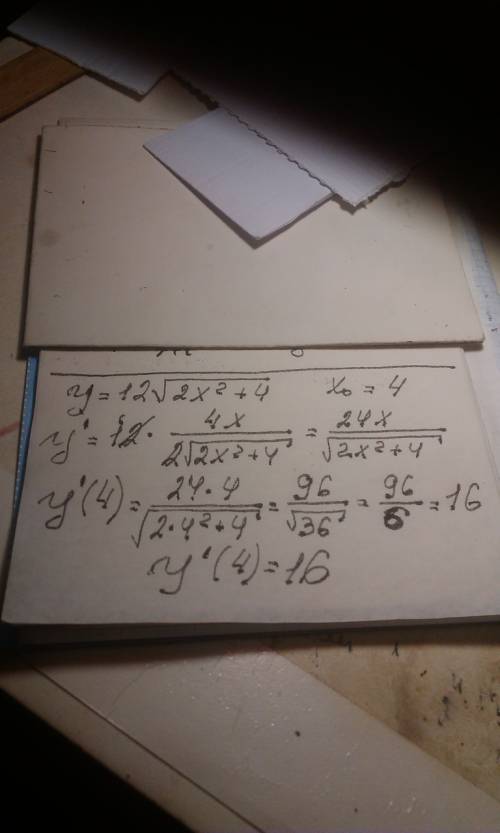 y = 12√(2x² + 4)    x₀ = 4
y' = 12 · 4x / (2√(2x² + 4)) = 24x / √(2x² + 4)
y'(4) = 24 · 4 / √(2 · 4² + 4) = 96 / √36 = 96 / 6 = 16
y'(4) = 16